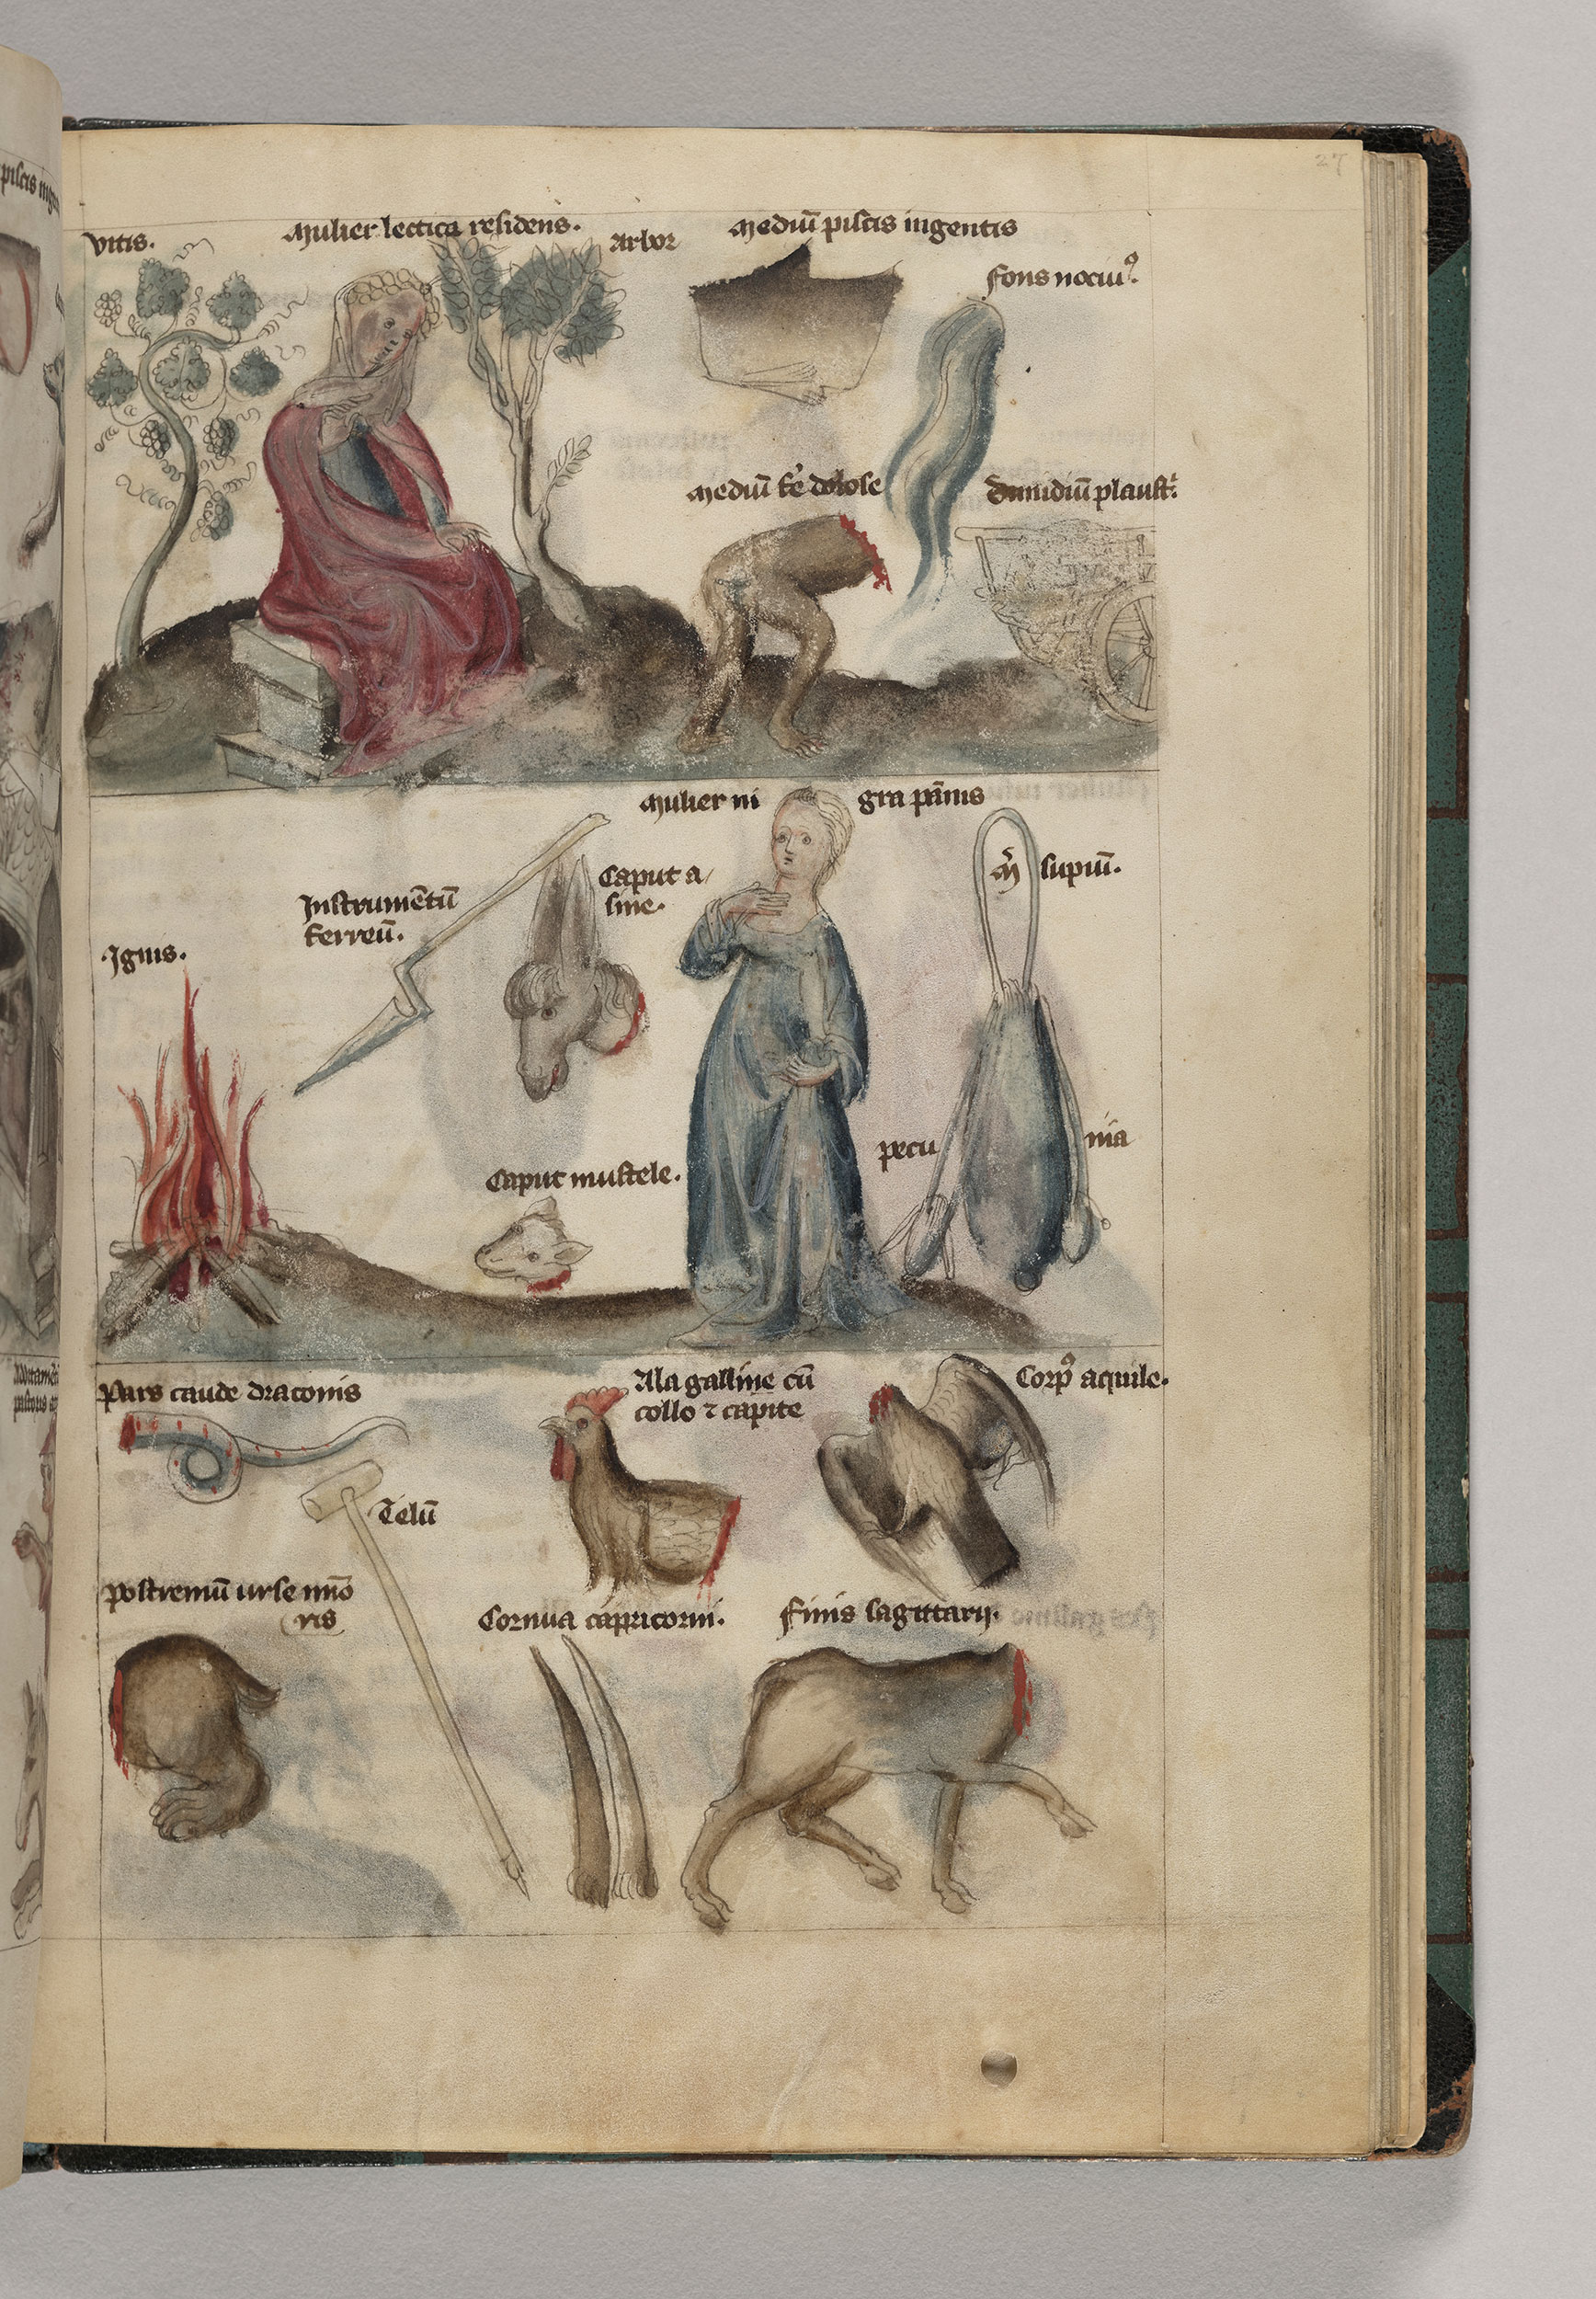 27
vitis.
Mulier lectica residens.
Arbor
Mediū piscis ingentis
fons nociuꝰ.
Mediū fe dolose
dimidiū plaustꝛ̄
Mulier ni gra pānis
Instrumētū
ferreū.
Caput a/
sine.
M̄ supiū.
.Ignis.
pecu nia
Caput mustele.
Pars caude draconis
Ala galline cū
collo ⁊ capite
Corpꝰ aquile.
Telū
postremū urse mīo
ris
Cornua capricorni.
finis sagittarij.